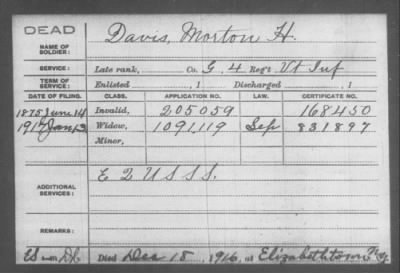 DEAD
NAME OF SOLDIER: Davis, Morton H.
SERVICE: Late rank, Co. G, 4 Reg't Vt Inf
TERM OF SERVICE: Enlisted , 1 Discharged , 1
DATE OF FILING. CLASS. APPLICATION NO. LAW. CERTIFICATE NO.
1875 June 14 Invalid, 205059 168450
1917 Jan 3 Widow, 1091119 Sep 831897
Minor,
ADDITIONAL SERVICES: E 2 U S S S.
REMARKS:
Died Dec 18, 1916, at Elizabethtown